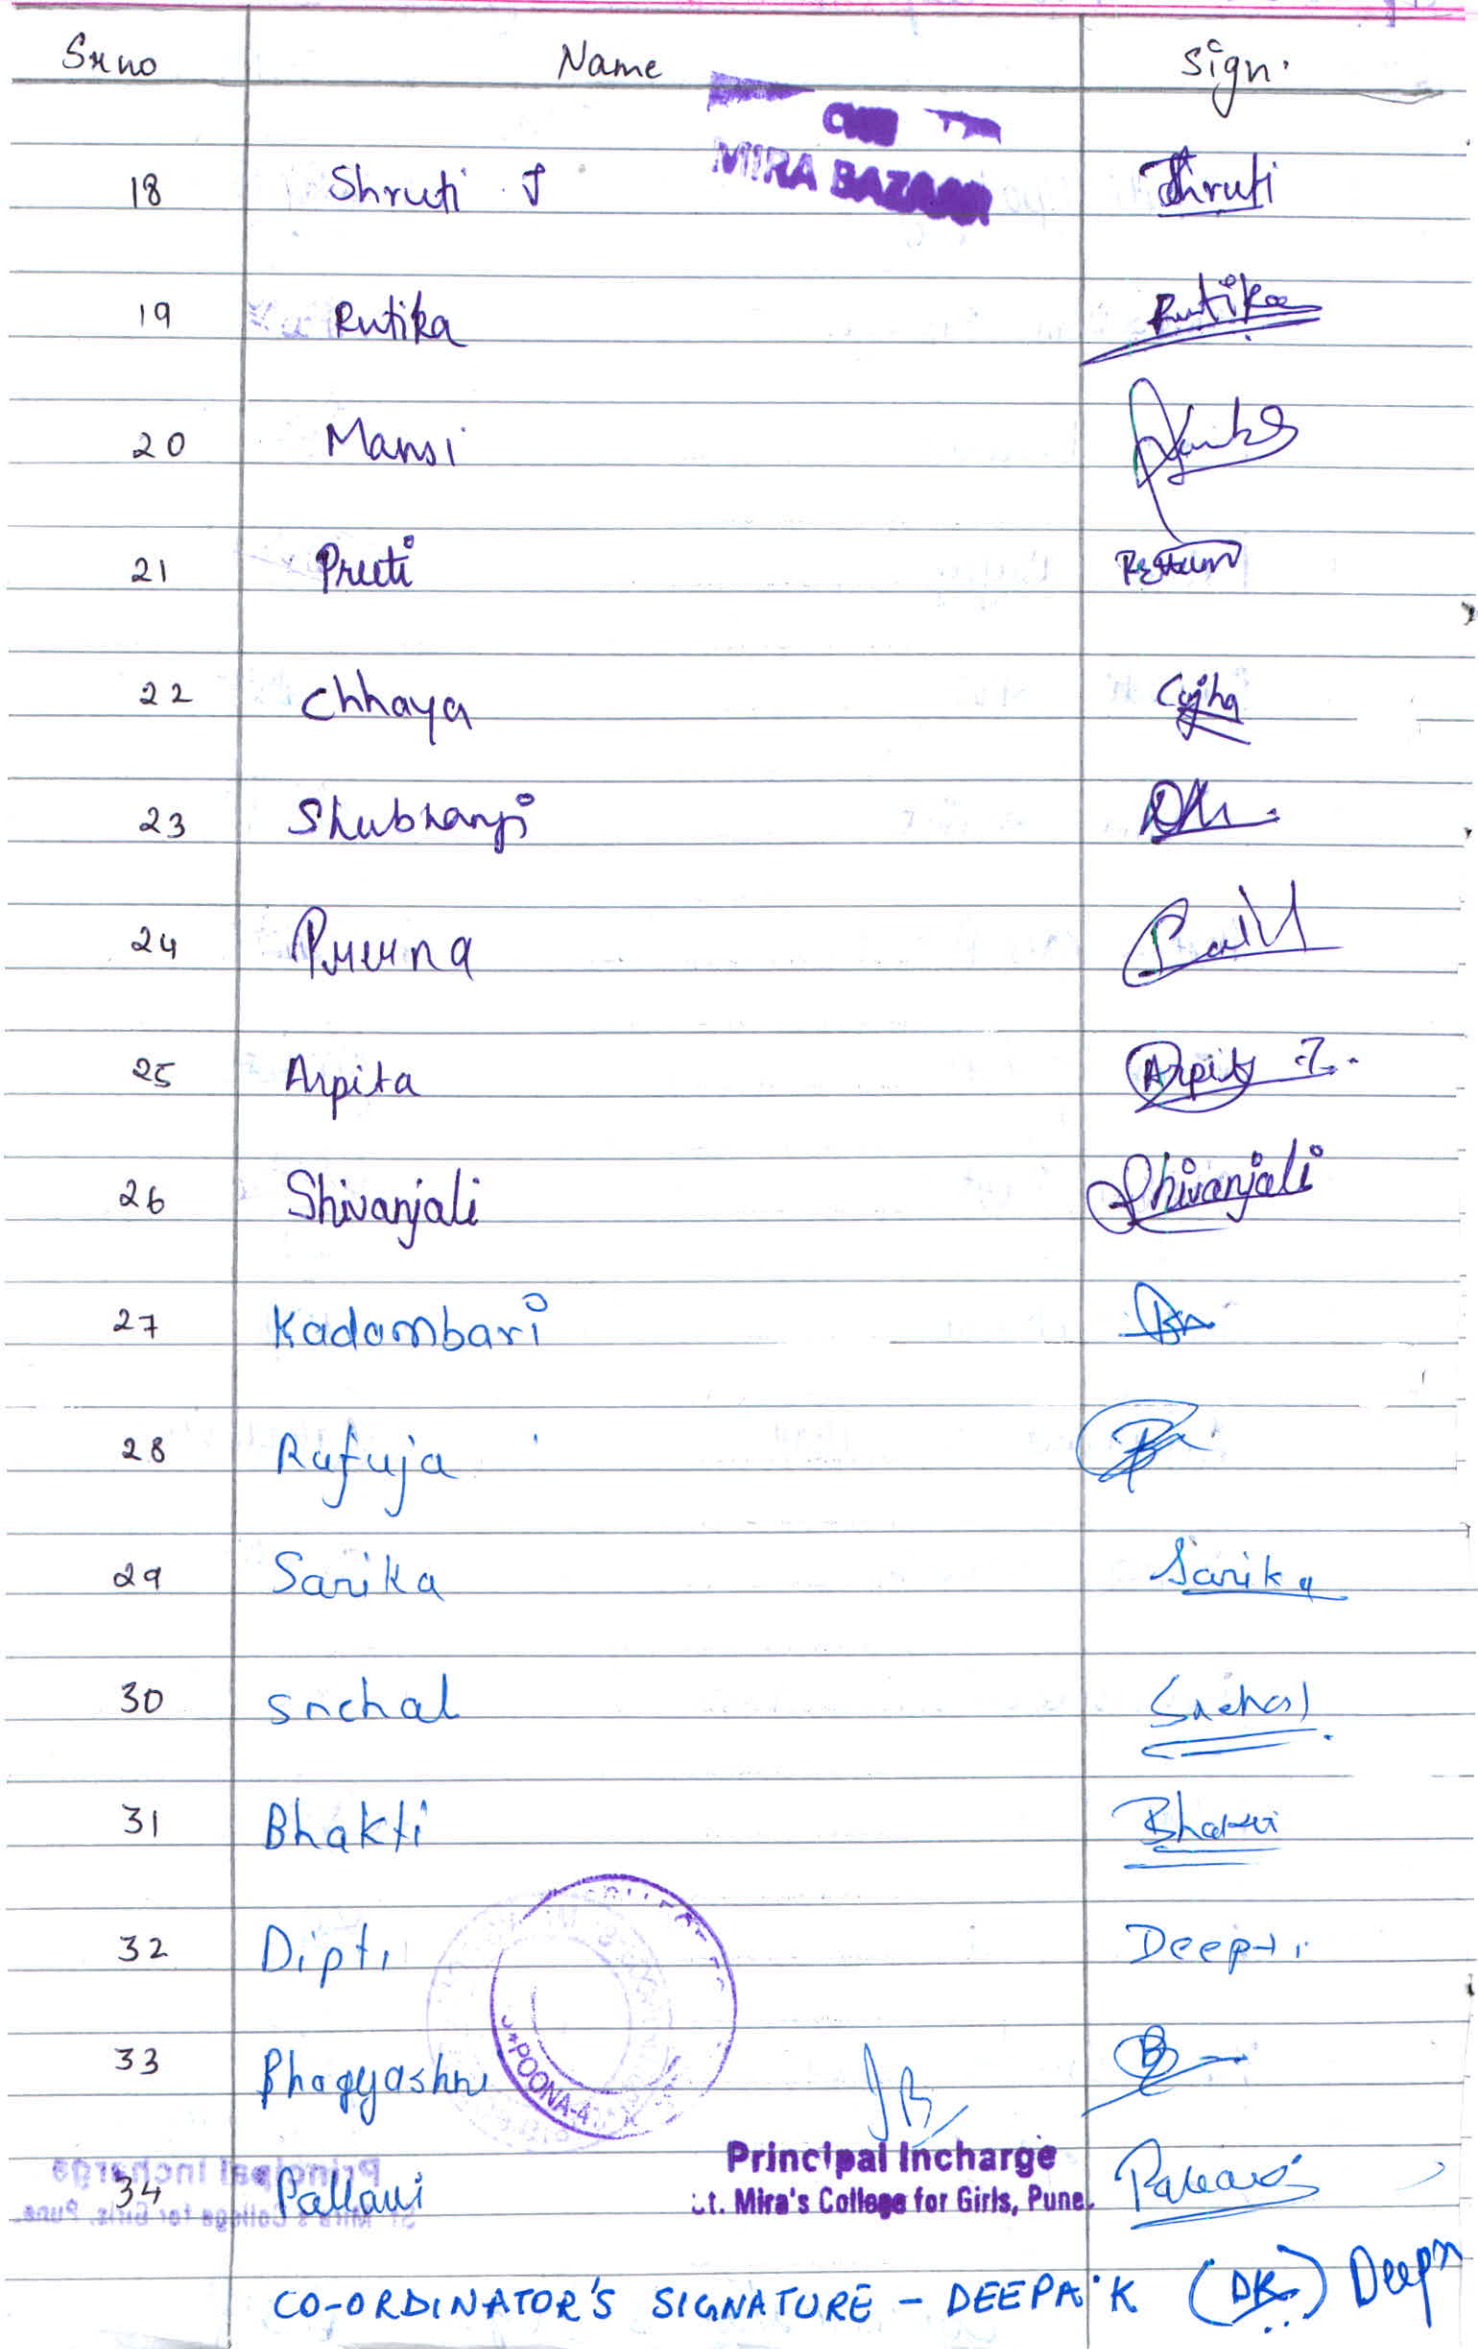 Sr no Name Sign.
MIRA BAZAAR
18 Shruti J Shruti
19 Rutika Rutika
20 Mansi
21 Preeti
22 Chhaya
23 Shubhangi
24 Prerna
25 Arpita Arpita
26 Shivanjali Shivanjali
27 Kadambari
28 Rutuja
29 Sarika Sarika
30 Snehal Snehal
31 Bhakti Bhakti
32 Dipti Deepti
33 Bhagyashri
POONA-4
Principal Incharge
St. Mira's College for Girls, Pune.
34 Pallavi Pallavi
CO-ORDINATOR'S SIGNATURE - DEEPAK (DK)